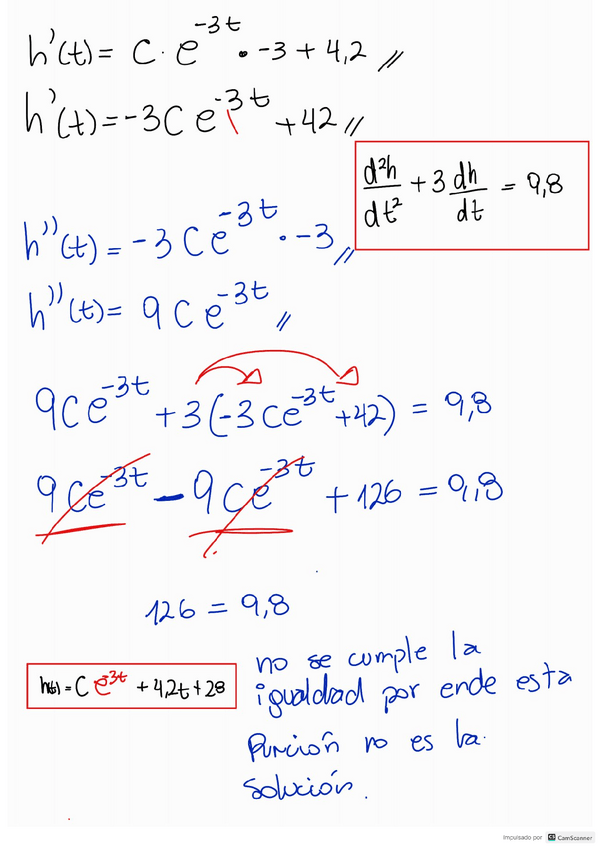 h'(t) = C · e^-3t · -3 + 4,2 //
h'(t) = -3C e^-3t + 42 //
d²h/dt² + 3 dh/dt = 9,8
h''(t) = -3 C e^-3t · -3 //
h''(t) = 9 C e^-3t //
9Ce^-3t + 3(-3Ce^-3t + 42) = 9,8
9Ce^-3t - 9Ce^-3t + 126 = 9,8
126 = 9,8
h(t) = C e^-3t + 42t + 28
no se cumple la
igualdad por ende esta
función no es la
solución.
Impulsado por CS CamScanner